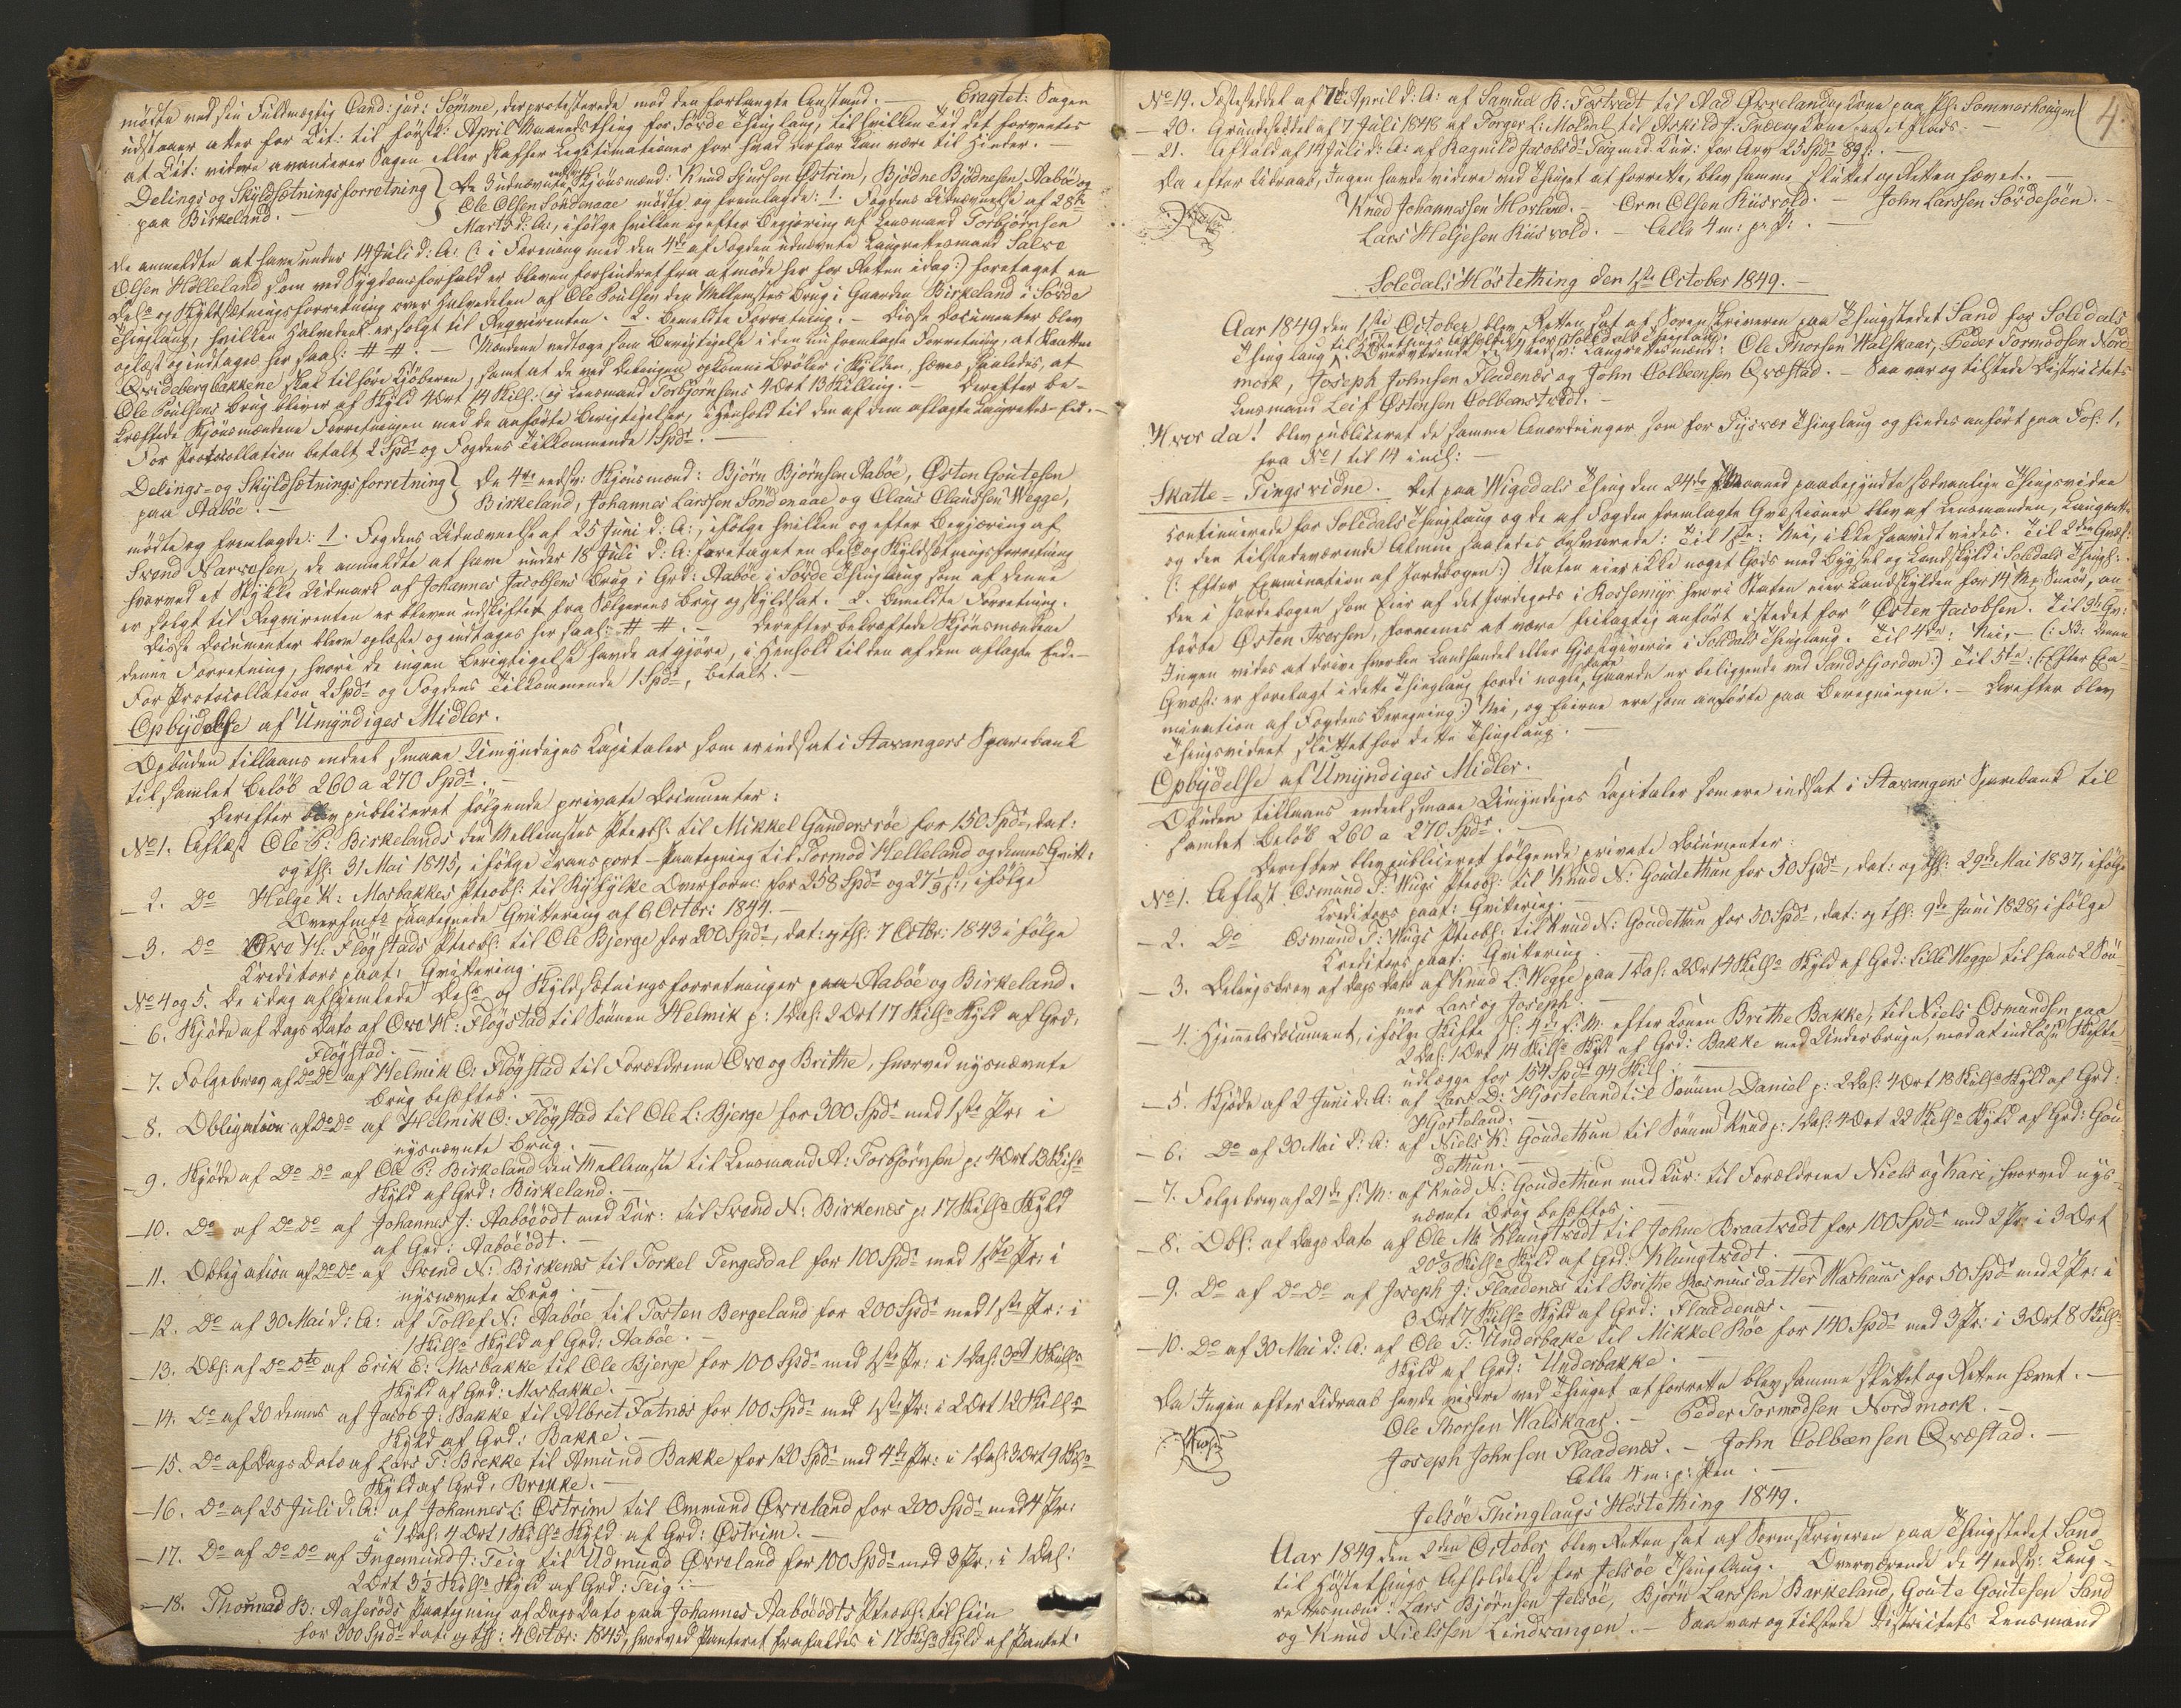 mødte ved sin Fuldmægtig Cand: jur: Sømme, der protesterede mod den forlangte Anstand. — Eragtet: Sagen
udstaaer atter for Cit: til førstk: April Maanedsthing for Søvde Thinglaug, til hvilken Tid det forventes
at Cit: videre avancerer Sagen eller skaffer Legitimationer for hvad derfor kan være til Hinder. —
Delings og Skyldsætningsforretning paa Birkeland. —
De 3 udnævnte Skjønsmænd: Knud Sjursen Østrim, Bjødne Bjødnesen Aabøe og
Ole Olsen Søndenaae mødte og fremlagde: 1. Fogdens Udnævnelse af 28de
Marts d: A:, ifølge hvilken og efter Begjæring af Lensmand Torbjørnsen
de anmeldte at have under 14 Juli d: A: (: i Forening med den 4de af Fogden udnævnte Laugrettesmand Salve
Olsen Hølleland som ved Sygdomsforfald er bleven forhindret fra at møde her for Retten idag:) foretaget en
Dels og Skyldsætningsforretning over Halvedelen af Ole Poulsen den Mellemstes Brug i Gaarden Birkeland i Søvde
Thinglaug, hvilken Halvedeel er solgt til Reqvirenten. 2. Bemeldte Forretning. — Disse Documenter blev
oplæst og indtages her saal: # #. — Mændene vedtoge som Berigtigelse i den nu fremlagte Forretning, at
Qvidebergbakkene skal tilhøre Kjøberen, samt at de ved Delingen opkomne Brøker i Skylden, hæves saaledes, at
Ole Poulsens Brug bliver af Skyld 4 Ort 14 Skill: og Lensmand Torbjørnsens 4 Ort 13 Skilling. — Derefter be-
kræftede Skjønsmændene Forretningen med de anførte Berigtigelser, i Henhold til den af dem aflagte Laugrettes-Eed. —
For Protocollation betalt 2 Spd og Fogdens Tilkommende 1 Spd. —
Delings- og Skyldsætningsforretning paa Aabøe. —
De 4re eedsv: Skjønsmænd: Bjørn Bjørnsen Aabøe, Østen Goutesen
Birkeland, Johannes Larssen Søndenaae og Claus Claussen Wegge,
mødte og fremlagde: 1. Fogdens Udnævnelse af 25 Juni d: A:, ifølge hvilken og efter Begjæring af
Svend Narvesen, de anmeldte at have under 18 Juli d: A: foretaget en Dels og Skyldsætningsforretning
hvorved et Stykke Udmark af Johannes Jacobsens Brug i Grd: Aabøe i Søvde Thinglaug som af denne
er solgt til Reqvirenten er bleven udskiftet fra Sælgerens Brug og skyldsat. 2. Bemeldte Forretning.
Disse Documenter bleve oplæste og indtages her saal: # #. — Derefter bekræftede Skjønsmændene
denne Forretning, hvori de ingen Berigtigelse havde at gjøre, i Henhold til den af dem aflagte Eed. —
For Protocollation 2 Spd og Fogdens Tilkommende 1 Spd, betalt. —
Opbydelse af Umyndiges Midler.
Opbuden tillaans endeel smaae Umyndiges Kapitaler som er indsat i Stavangers Sparebank
til samlet Beløb 260 a 270 Spd. —
Derefter blev publiceret følgende private Documenter:
No 1. Aflæst Ole P: Birkelands den Mellemstes Pteobl: til Mikkel Gundersrøe for 150 Spd, dat:
og thl: 31 Mai 1845, ifølge Transport-Paategning til Tormod Helleland og dennes Qvitt:
— 2. Do Helge K: Mosbakkes Pteobl: til Ryfylke Overform: for 258 Spd og 27 1/2 s, ifølge
Overfmts paategnede Qvittering af 6 Octbr: 1844. —
— 3. Do Ove H: Fløgstads Pteobl: til Ole Bjerge for 200 Spd, dat: og thl: 7 Octbr: 1843 ifølge
Creditors paat: Qvittering. —
No 4 og 5. De idag afhjemlede Dels og Skyldsætningsforretninger paa Aabøe og Birkeland.
— 6. Skjøde af Dags Dato af Ove H: Fløgstad til Sønnen Helmik p: 1 Dal: 2 Ort 17 Skills Skyld af Grd:
Fløgstad. —
— 7. Følgebrev af Do Do af Helmik O: Fløgstad til Forældrene Ove og Brithe, hvorved nysnævnte
Brug beheftes. —
— 8. Obligation af Do Do af Helmik O: Fløgstad til Ole L: Bjerge for 300 Spd med 1ste Pr: i
nysnævnte Brug. —
— 9. Skjøde af Do Do af Ole P: Birkeland den Mellemste til Lensmand A: Torbjørnsen p: 4 Ort 13 Skills
Skyld af Grd: Birkeland. —
— 10. Do af Do Do af Johannes J: Aabøeødt med Cur: til Svend N: Birkenæs p: 17 Skills Skyld
af Grd: Aabøeødt. —
— 11. Obligation af Do Do af Svend N: Birkenæs til Torkel Tengesdal for 100 Spd med 1ste Pr: i
nysnævnte Brug. —
— 12. Do af 30 Mai d: A: af Tollef N: Aabøe til Tosten Bergeland for 200 Spd med 1ste Pr: i
1 Skills Skyld af Grd: Aabøe. —
— 13. Obl: af Do Dto af Erik E: Mosbakke til Ole Bjerge for 100 Spd med 1ste Pr: i 1 Dal: 3 Ort 1 Skills
Skyld af Grd: Mosbakke. —
— 14. Do af 20 dennes af Jacob J: Bakke til Albret Fatnæs for 100 Spd med 1ste Pr: i 2 Ort 12 Skills
Skyld af Grd: Bakke. —
— 15. Do af Dags Dato af Lars T: Brekke til Amund Bakke for 120 Spd med 4de Pr: i 1 Dal: 3 Ort 9 Skills
Skyld af Grd: Brekke. —
— 16. Do af 25 Juli d: A: af Johannes C: Østrim til Ommund Øvreland for 200 Spd med 4 Pr:
i 1 Dal: 4 Ort 1 Skills Skyld af Grd: Østrim. —
— 17. Do af Do Do af Ingemund J: Teig til Udmund Øvreland for 100 Spd med 3 Pr: i 1 Dal:
2 Ort 3 1/2 Skills Skyld af Grd: Teig. —
— 18. Thomas B: Aaserøds Paategning af Dags Dato paa Johannes Aabøeødts Pteobl: til hiin
for 300 Spd dat: og thl: 4 Octbr: 1845, hvorved Panteret frafaldes i 17 Skills Skyld af Pantet.
4.
No 19. Festeseddel af 7de April d: A: af Samuel K: Tostvedt til Aad Øvreland og Kone paa Pl: Sommerhougen
— 20. Grundeseddel af 7 Juli 1848 af Torger L: Moldal til Askild J: og Kone paa et Plads. —
— 21. Afkald af 14 Juli d: A: af Ragnild Jacobsd: Teig med Cur: for Arv 25 Spd 89 s. —
Da efter Udraab, Ingen havde videre ved Thinget at forrette, blev samme sluttet og Retten hævet. —
Knud Johannessen Horland. — Orm Olsen Riisvold. — John Larssen Søvdesøen. —
Lars Heljesen Riisvold. — Alle 4 m: p: P: —
Soledals Høstething den 1ste October 1849. —
Aar 1849 den 1ste October blev Retten sat af Sorenskriveren paa Thingstedet Sand for Soledals
Thinglaug til Høstethings Afholdelse for Soledals Thinglaug. Overværende de 4 eedsv: Laugrettesmænd: Ole Thorsen Walskaar, Peder Tormodsen Nord-
mork, Joseph Johnsen Fladenæs og John Colbeensen Qvæstad. — Saa var og tilstede Districtets
Lensmand Leif Østensen Colbeenstvedt. —
Hvor da! blev publiceret de samme Anordninger som for Tysvær Thinglaug og findes anført paa Fol: 1,
fra No 1 til 14 incl: —
Skatte-Tingsvidne. Det paa Wigedals Thing den 24de f: Maaned paabegyndte sædvanlige Thingsvidne
continuerede for Soledals Thinglaug og de af Fogden fremlagte Qvæstioner blev af Lensmanden, Laugretten
og den tilstedeværende Almue saaledes besvarede: Til 1ste: Nei, ikke saavidt vides. Til 2den Qvæst:
(: Efter Examination af Jordebogen:) Staten eier ikke noget Gods med Bygsel og Landskyld i Soledals Thingl:.
Den i Jordebogen som Eier af det Jordegods i Rossemyr hvori Staten eier Landskylden for 14 Mrk Smør, an-
førte Østen Iversen, formenes at være feilagtig anført istedet for "Østen Jacobsen. Til 3de Qv:
Ingen vides at drive hverken Landhandel eller Gjæstgiverie i Soledals Thinglaug. Til 4de: Nei, — (: NB: denne
Qvæst: er forelagt i dette Thinglaug fordi nogle faae Gaarde er beliggende ved Sandsfjorden:) Til 5te: (: Efter Exa-
mination af Fogdens Beregning:) Nei, og Eierne ere som anførte paa Beregningen. — Derefter blev
Thingsvidnet sluttet for dette Thinglaug. —
Opbydelse af Umyndiges Midler.
Obuden tillaans endeel smaae Umyndiges Kapitaler som ere indsat i Stavangers Sparebank til
samlet Beløb 260 a 270 Spd. —
Derefter blev publiceret følgende private Documenter:
No 1. Aflæst Osmund T: Wugs Pteobl: til Knud N: Goudethun for 50 Spd, dat: og thl: 29de Mai 1837, ifølge
Creditors paat: Qvittering. —
— 2. Do Osmund T: Wugs Pteobl: til Knud N: Goudethun for 50 Spd, dat: og thl: 9de Juni 1828, ifølge
Creditors paat: Qvittering. —
— 3. Delingsbrev af Dags Dato af Knud L: Wegge paa 1 Dal: 2 Ort 4 Skills Skyld af Grd: Lille Wegge til hans 2 Søn-
ner Lars og Joseph. —
— 4. Hjemmelsdocument, ifølge Skifte sl: 4de f: M: efter Konen Brithe Bakke, til Niels Osmundsen paa
2 Dal: 1 Ort 14 Skills Skyld af Grd: Bakke med Underbruge, mod at indløse Skifte-
udlægge for 154 Spd 94 Skill. —
— 5. Skjøde af 2 Juni d: A: af Lars D: Hjorteland til Sønnen Daniel p: 2 Dal: 4 Ort 18 Skills Skyld af Grd:
Hjorteland. —
— 6. Do af 30 Mai d: A: af Niels K: Goudethun til Sønnen Knud p: 1 Dal: 4 Ort 22 Skills Skyld af Grd: Gou-
dethun. —
— 7. Følgebrev af 21de f: M: af Knud N: Goudethun med Cur: til Forældrene Niels og Kari, hvorved nys-
nævnte Brug beheftes. —
— 8. Obl: af Dags Dato af Ole M: Klungtvedt til Johne Braatvedt for 100 Spd med 2 Pr: i 3 Ort
20 2/3 Skills Skyld af Grd: Klungtvedt. —
— 9. Do af Do Do af Joseph J: Flaadenæs til Brithe Rasmusdatter Warhuus for 50 Spd med 2 Pr: i
3 Ort 7 Skills Skyld af Grd: Flaadenæs. —
— 10. Do af 30 Mai d: A: af Ole T: Underbake til Mikkel Røe for 140 Spd med 3 Pr: i 3 Ort 8 Skills
Skyld af Grd: Underbakke. —
Da Ingen efter Udraab havde videre ved Thinget at forrette blev samme sluttet og Retten hævet. —
Ole Thorsen Walskaar. — Peder Tormodsen Nordmork. —
Joseph Johnsen Flaadenæs. — John Colbeensen Qvæstad. —
Alle 4 m: p: Pen. —
Jelsøe Thinglaugs Høstething 1849.
Aar 1849 den 2den October blev Retten sat af Sorenskriveren paa Thingstedet Sand
til Høstethings Afholdelse for Jelsøe Thinglaug. Overværende de 4 eedsv: Laug-
rettesmænd: Lars Bjørnsen Jelsøe, Bjørn Larssen Barkeland, Goute Goutesen Sand
og Knud Nielssen Lindvangen. — Saa var og tilstede Districtets Lensmand